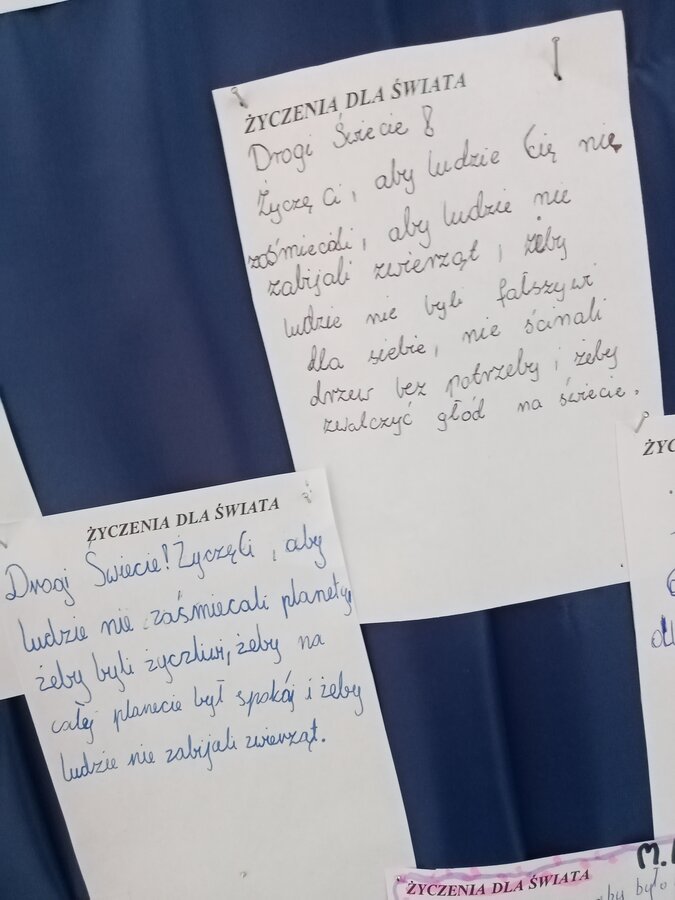 ŻYCZENIA DLA ŚWIATA
Drogi Świecie!
Życzę Ci, aby ludzie Cię nie
zaśmiecali, aby ludzie nie
zabijali zwierząt, żeby
ludzie nie byli fałszywi
dla siebie, nie ścinali
drzew bez potrzeby, żeby
zwalczyć głód na świecie.
ŻYCZENIA DLA ŚWIATA
Drogi Świecie! Życzę Ci, aby
ludzie nie zaśmiecali planety,
żeby byli życzliwi, żeby na
całej planecie był spokój i żeby
ludzie nie zabijali zwierząt.
ŻYC
ŻYCZENIA DLA ŚWIATA
było